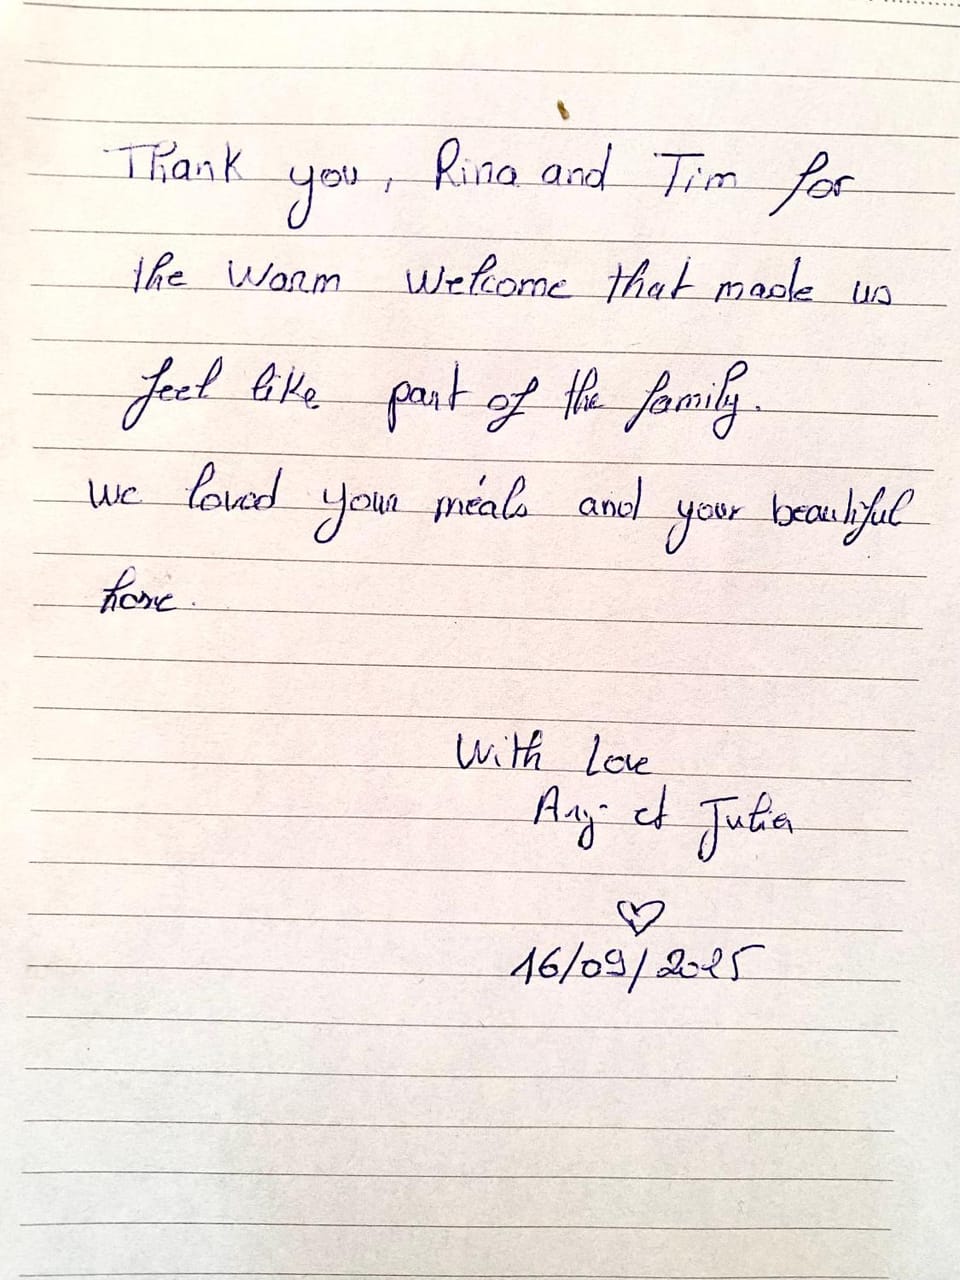 Thank you, Rina and Tim for
the warm welcome that made us
feel like part of the family.
we loved your méals and your beautiful
home.
With Love
et Julia
♡
16/09/2025